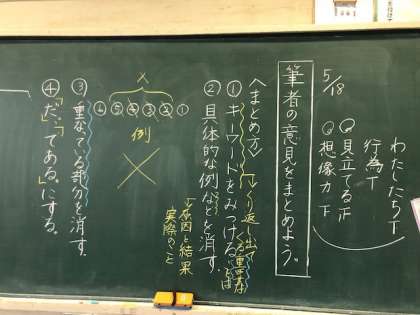 わたしたち T
行為 T
見立てる 正
想像力 下
5/18
筆者の意見をまとめよう。
〈まとめ方〉
①キーワードをみつける。
↓くり返し出てくる
重要なことば
②具体的な例などを消す。
↓原因と結果
実際のこと
例
⑥⑤④③②①
③重なっている部分を消す。
④「だ。」「である。」にする。